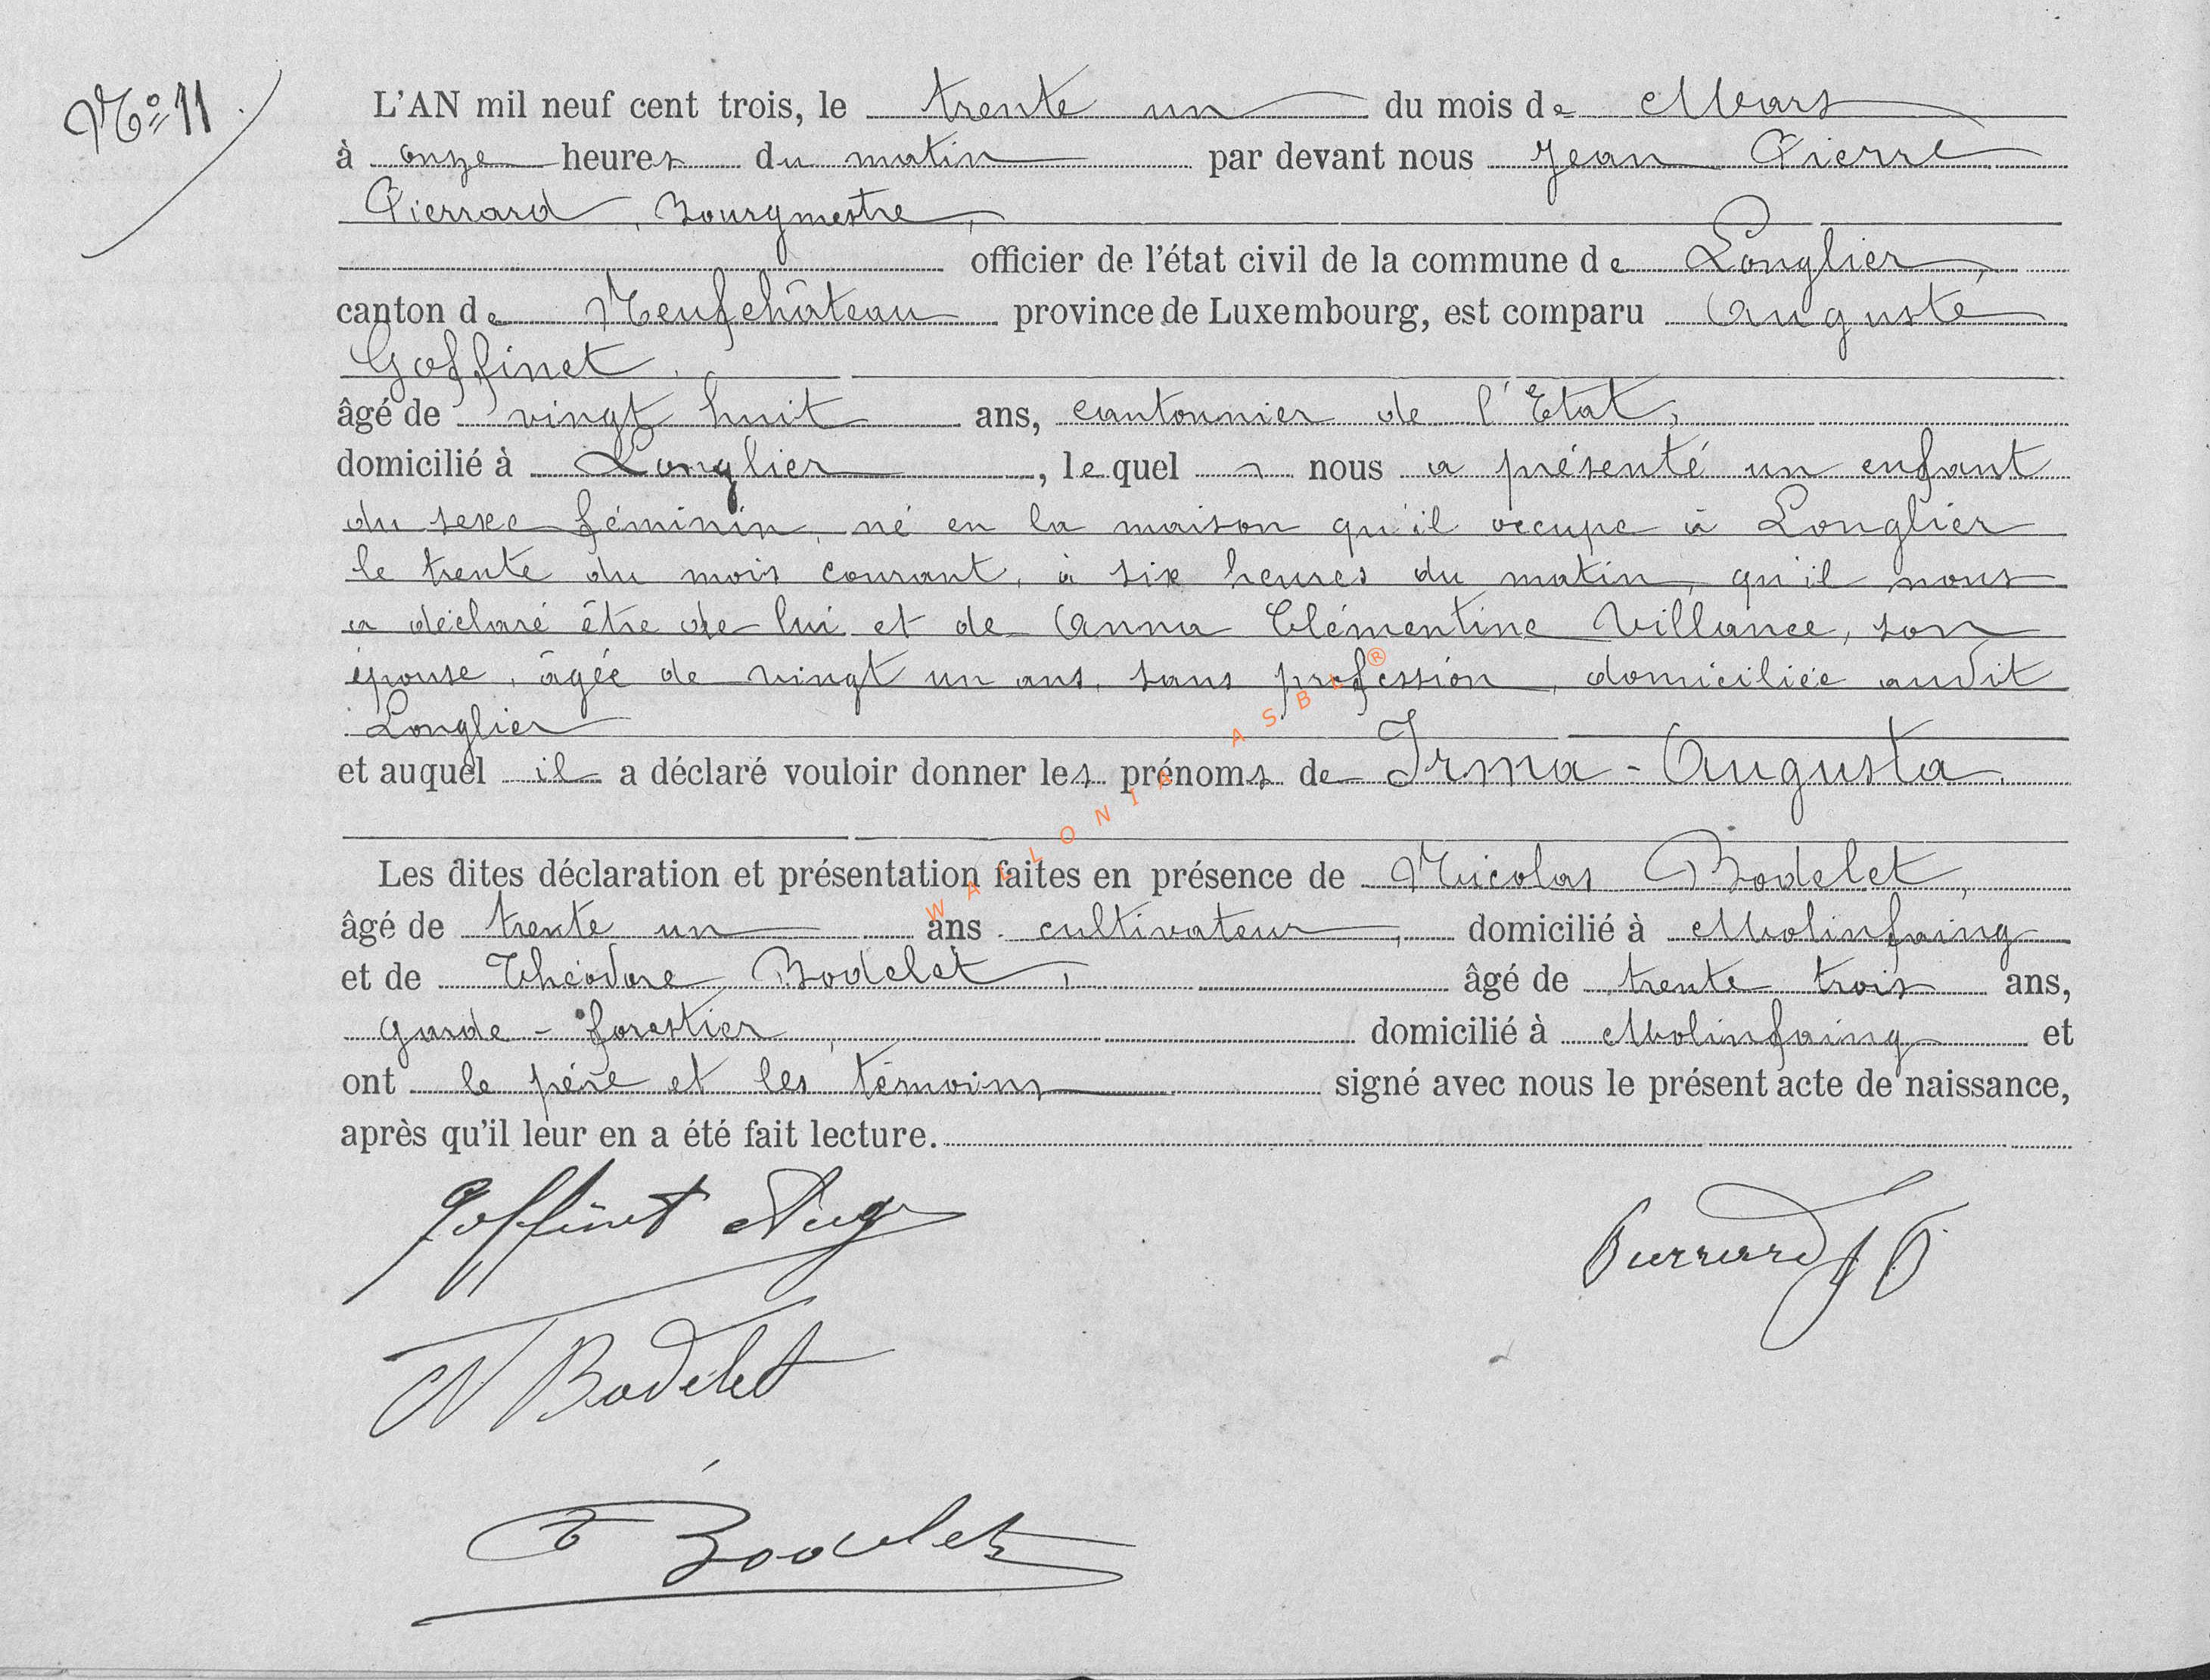 Nº 11
L'AN mil neuf cent trois, le trente un du mois de Mars
à onze heures du matin par devant nous Jean Pierre
Pierrard, Bourgmestre,
officier de l'état civil de la commune de Longlier,
canton de Neufchâteau province de Luxembourg, est comparu Auguste
Goffinet.
âgé de vingt huit ans, cantonnier de l'Etat,
domicilié à Longlier, lequel nous a présenté un enfant
du sexe féminin, né en la maison qu'il occupe à Longlier
le trente du mois courant, à six heures du matin, qu'il nous
a déclaré être de lui et de Anna Clémentine Villance, son
épouse, âgée de vingt un ans, sans profession, domiciliée audit
Longlier
et auquel il a déclaré vouloir donner les prénoms de Irma - Augusta.
Les dites déclaration et présentation faites en présence de Nicolas Bodelet,
âgé de trente un ans. cultivateur, domicilié à Molinfaing
et de Théodore Bodelet, âgé de trente trois ans,
garde - forestier, domicilié à Molinfaing et
ont le père et les témoins signé avec nous le présent acte de naissance,
après qu'il leur en a été fait lecture.
Goffinet Aug
Pierrard J P
N Bodelet
T Bodelet
WALLONIA ASBL ®